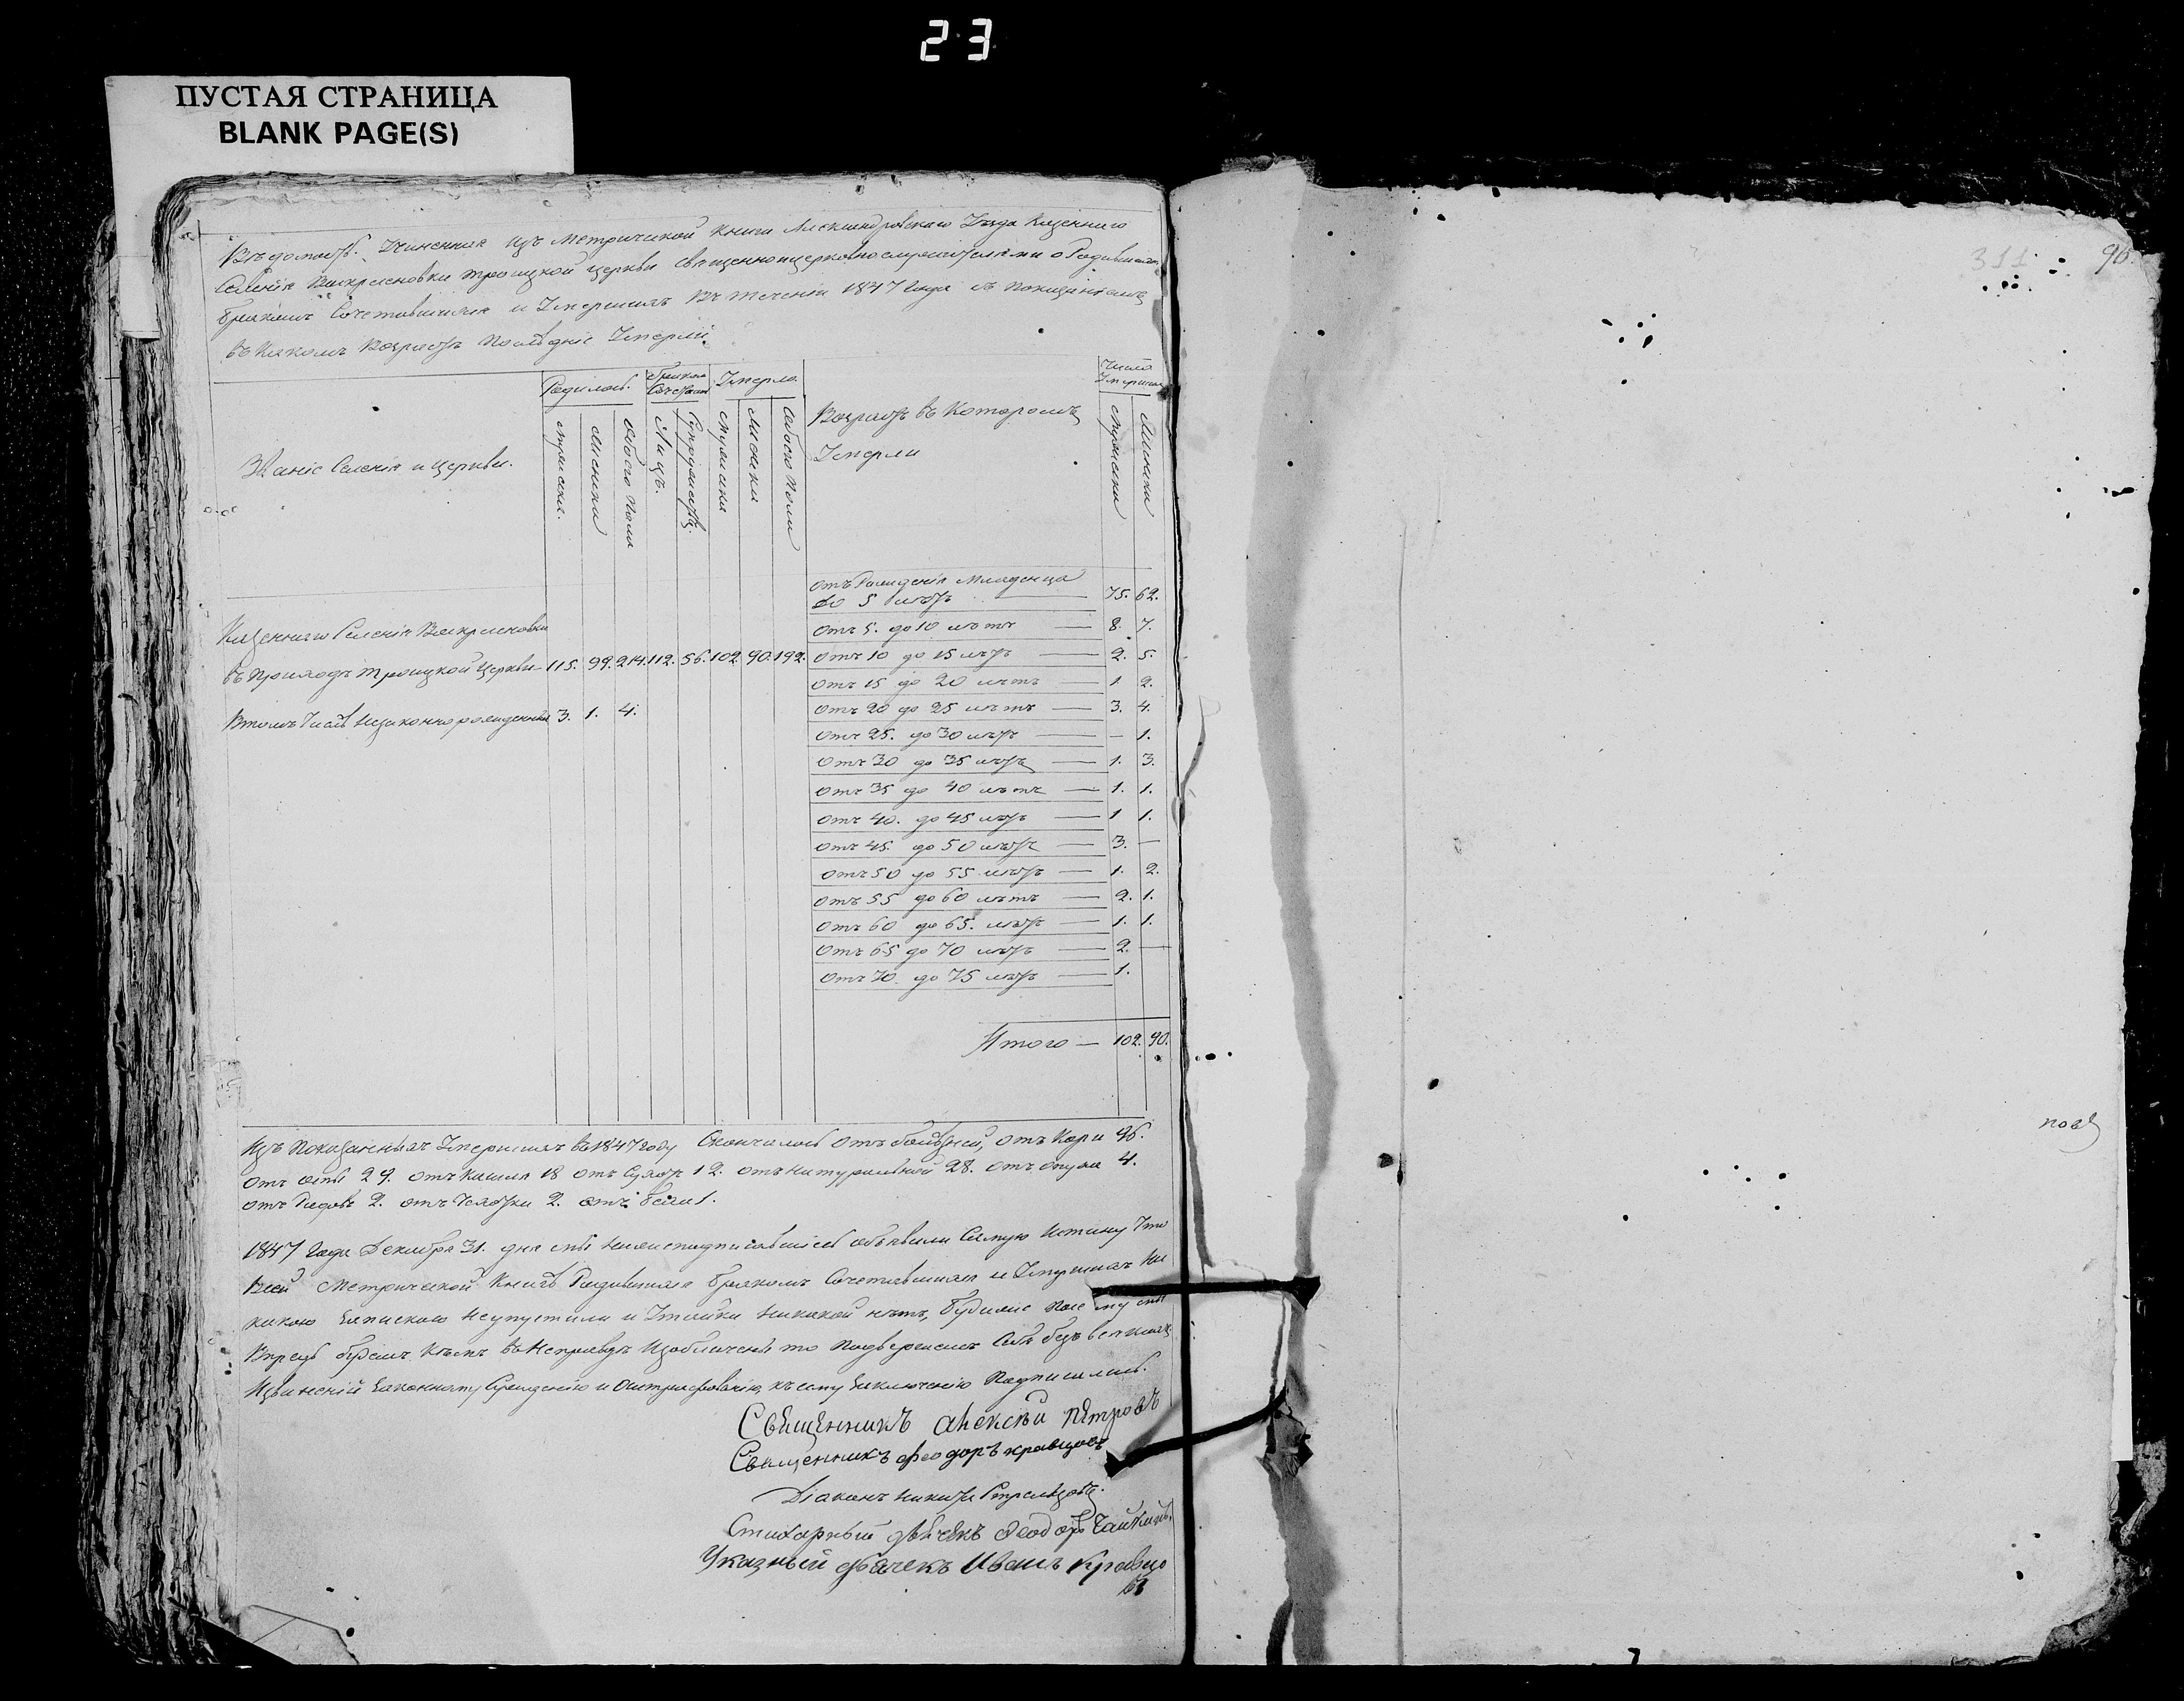 23
ПУСТАЯ СТРАНИЦА
BLANK PAGE(S)
Вѣдомость. Учиненная Изъ Метрической книги Александровскаго Уѣзда Казеннаго
Селенія Воскресеновки троицкой церкви священноицерковнослужителями о Родившихся
бракомъ Сочетавшихся и Умершихъ Въ теченіи 1847 Года съ показаніемъ
въ Какомъ Возрастѣ Послѣдніе Умерли.
Званіе Селенія и церкви.
Родилось.
бракомъ Сочеталось
Умерло.
Возрастъ въ Которомъ Умерли
Число Умершихъ
мужеска.
женска
Обоего Пола
Лицъ.
Супружествъ.
мужеска
женска
Обоего Пола
мужеска
женска
отъ Рожденія Младенца
до 5 лѣтъ 75. 62.
Отъ 5. до 10 лѣтъ 8. 7.
Отъ 10 до 15 лѣтъ 2. 5.
Отъ 15 до 20 лѣтъ 1 2.
Отъ 20 до 25 лѣтъ 3. 4.
Отъ 25. до 30 лѣтъ — 1.
Отъ 30 до 35 лѣтъ 1. 3.
Отъ 35 до 40 лѣтъ 1. 1.
Отъ 40. до 45 лѣтъ 1 1.
Отъ 45. до 50 лѣтъ 3. —
Отъ 50 до 55 лѣтъ 1. 2.
Отъ 55 до 60 лѣтъ 2. 1.
Отъ 60 до 65. лѣтъ 1. 1.
Отъ 65 до 70 лѣтъ 2. —
Отъ 70. до 75 лѣтъ 1.
Итого — 102. 90.
Казеннаго Селенія Воскресеновки
въ Приходѣ троицкой Церкви 115. 99. 214. 112. 56. 102. 90. 192.
Втомъ Числѣ Незаконно рожденныхъ 3. 1. 4.
Изъ Показанныхъ Умершихъ въ 1847 году Скончалось Отъ болѣзней, отъ Кори 96.
Отъ оспы 29. отъ Кашля 18 отъ Сухотъ 12. отъ натуральной 28. отъ опуха 4.
отъ Родовъ 2. отъ Чахотки 2. отъ 1.
1847 Года Декабря 31. дня мы нижеподписавшіеся объявили Самую Истину Что
Всей Метрической Книгѣ Родившихся бракомъ Сочетавшихся и Умершихъ Ни
какою Запискою Неупустили и Утайки Никакой нѣтъ, будеже Посему мы
Впредь будемъ Кѣмъ въ Неправдѣ Изобличены то Подвержемъ Себѣ безъ всякихъ
Извиненій Законному Сужденію и Оштрафованію, къ сему Заключенію Подписались.
Священникъ Алексѣй Петровъ
Священникъ феодоръ кравцовъ
Діаконъ Никита Стрельцовъ.
Стихарный дьячекъ Ѳеодоръ Чайкинъ.
Указный дьячекъ Иванъ Кравцо
въ
311
96.